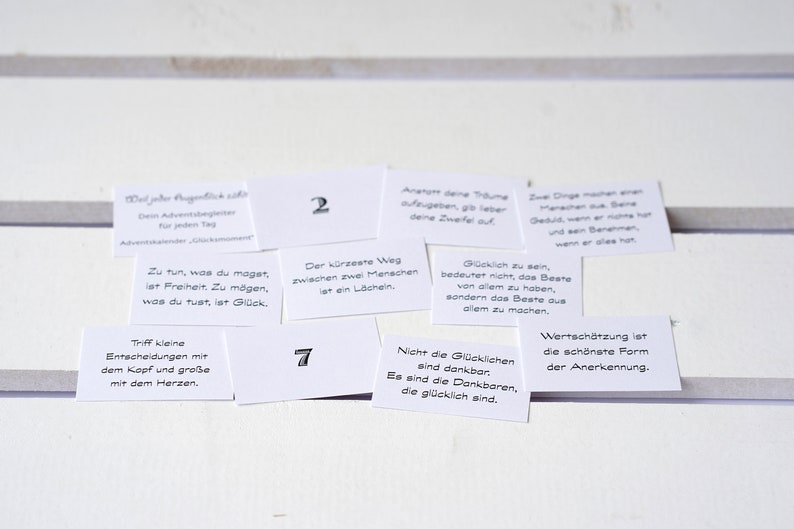 Weil jeder Augenblick zählt
Dein Adventsbegleiter
für jeden Tag
Adventskalender „Glücksmoment"
2
Anstatt deine Träume
aufzugeben, gib lieber
deine Zweifel auf.
Zwei Dinge machen einen
Menschen aus. Seine
Geduld, wenn er nichts hat
und sein Benehmen,
wenn er alles hat.
Zu tun, was du magst,
ist Freiheit. Zu mögen,
was du tust, ist Glück.
Der kürzeste Weg
zwischen zwei Menschen
ist ein Lächeln.
Glücklich zu sein,
bedeutet nicht, das Beste
von allem zu haben,
sondern das Beste aus
allem zu machen.
Triff kleine
Entscheidungen mit
dem Kopf und große
mit dem Herzen.
7
Nicht die Glücklichen
sind dankbar.
Es sind die Dankbaren,
die glücklich sind.
Wertschätzung ist
die schönste Form
der Anerkennung.